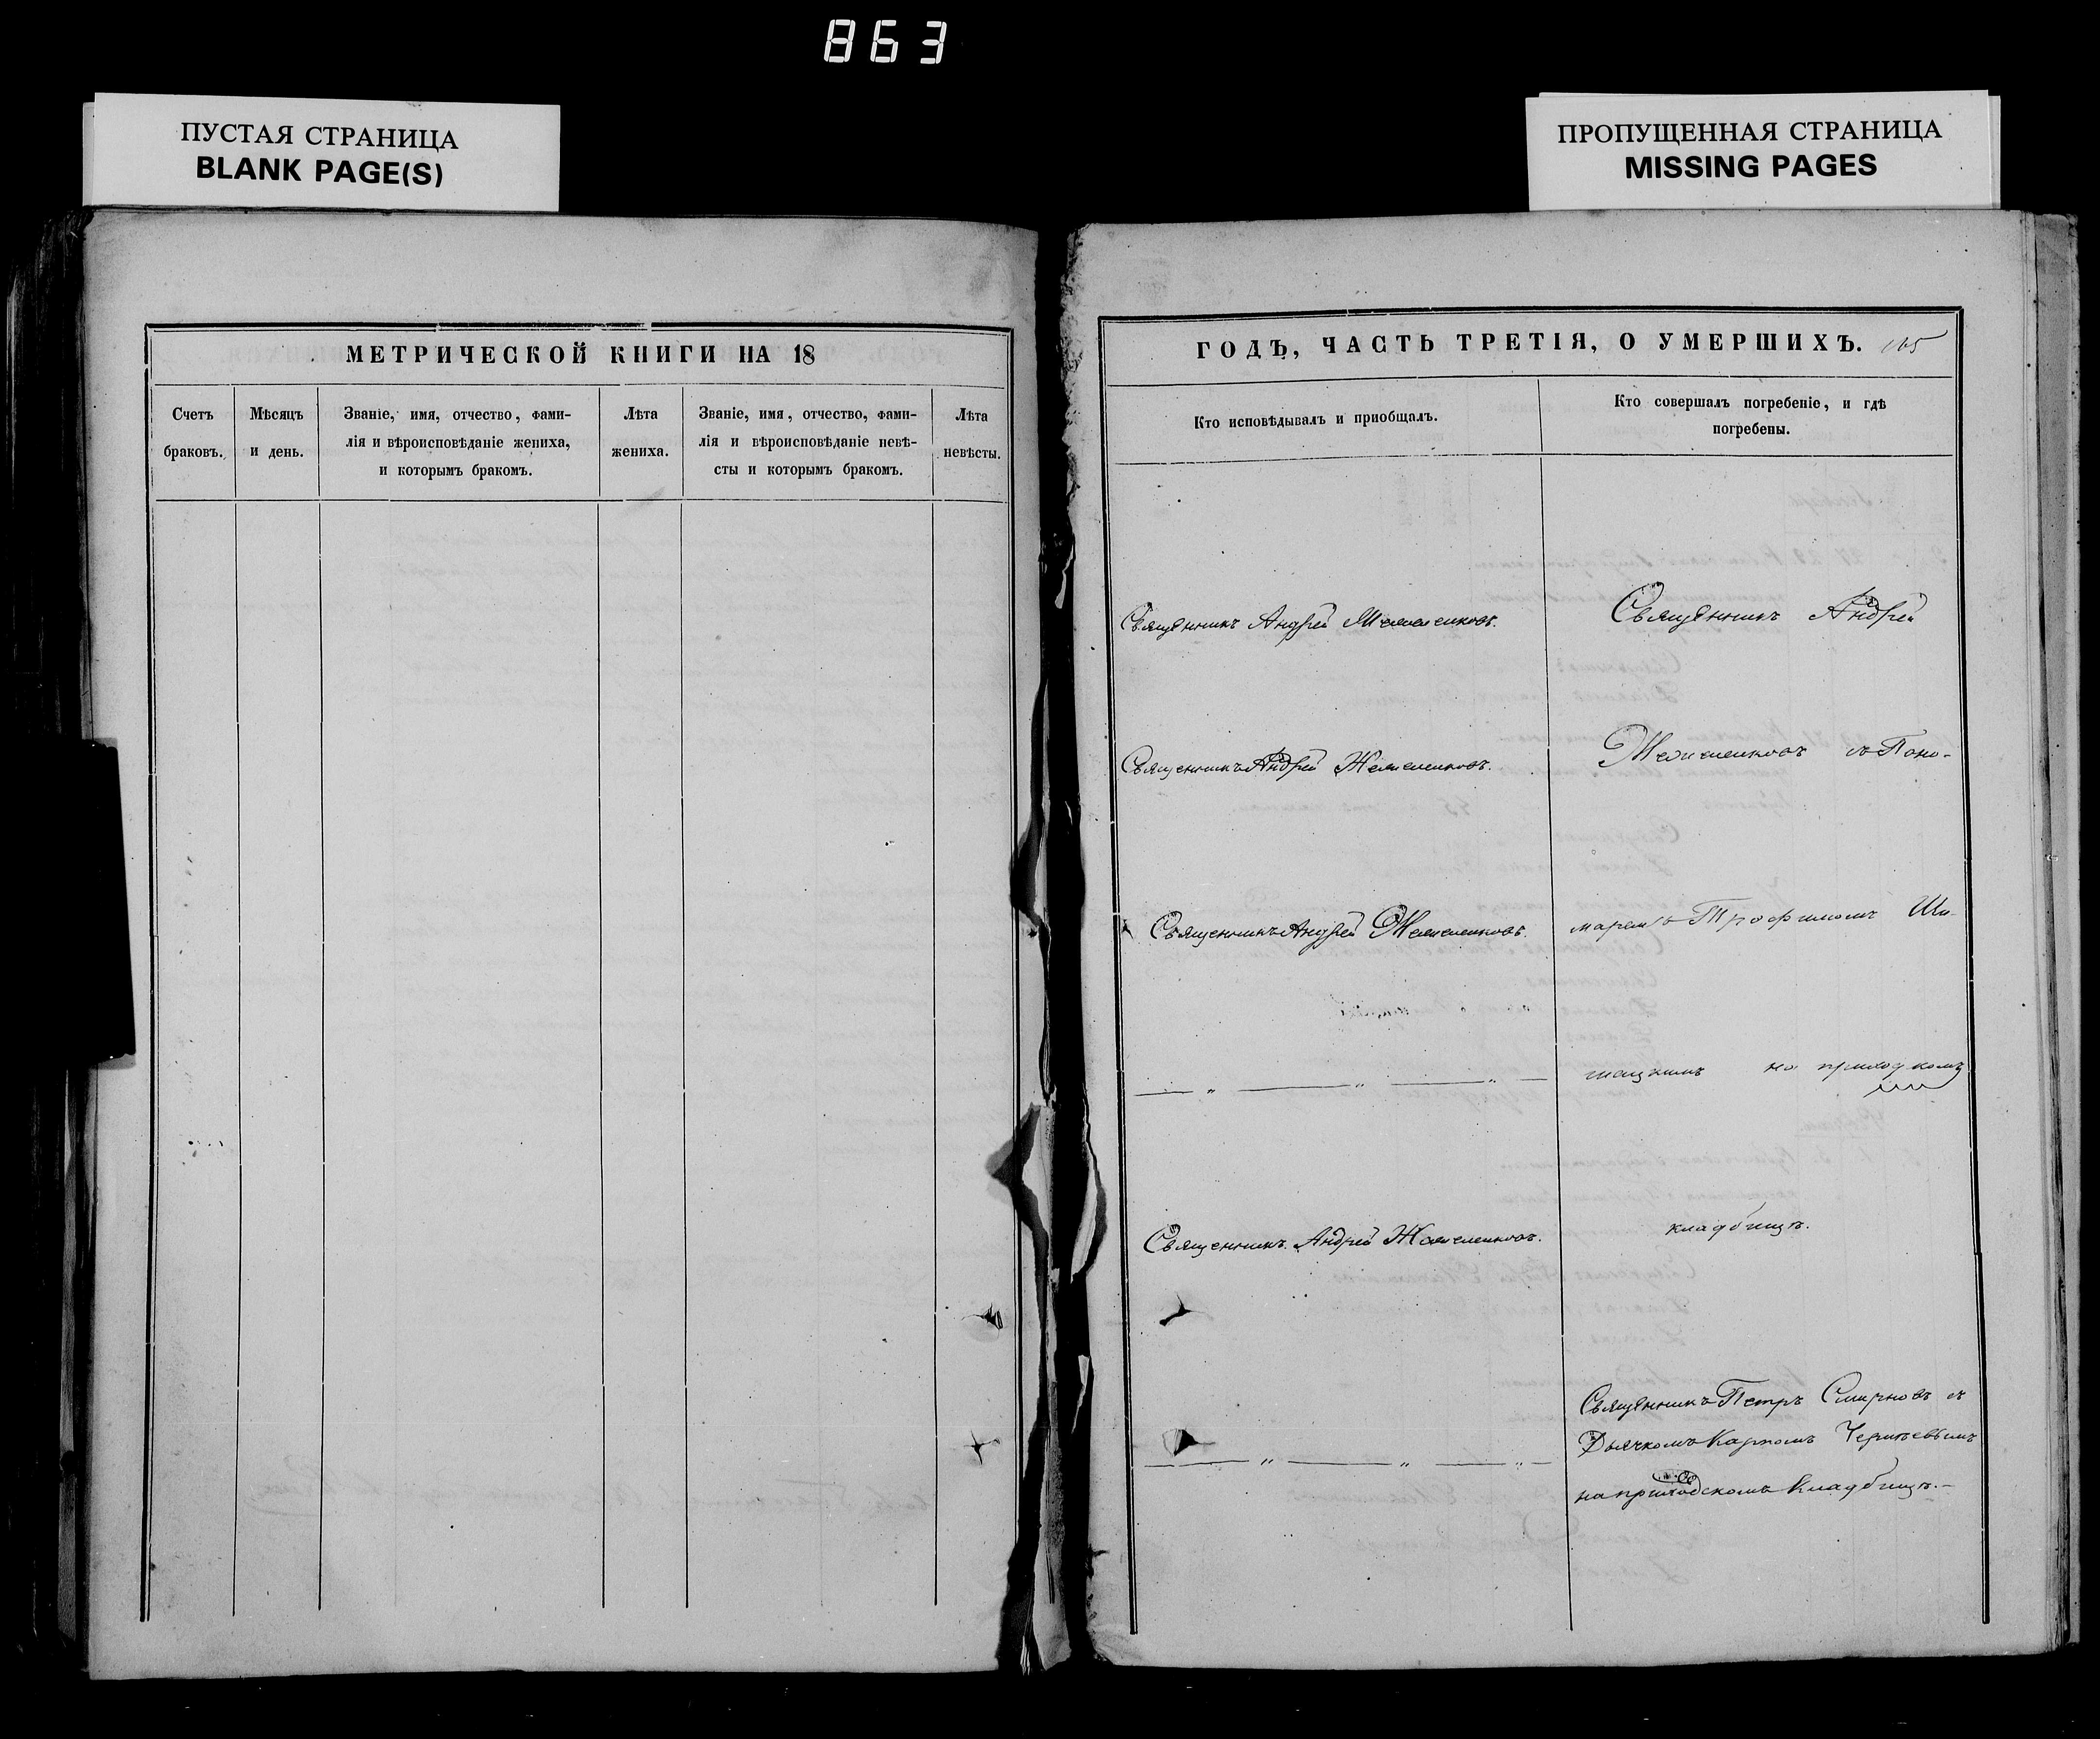 863
ПУСТАЯ СТРАНИЦА
BLANK PAGE(S)
ПРОПУЩЕННАЯ СТРАНИЦА
MISSING PAGES
МЕТРИЧЕСКОЙ КНИГИ НА 18
Счетъ браковъ.
Мѣсяцъ и день.
Званіе, имя, отчество, фами-
лія и вѣроисповѣданіе жениха,
и которымъ бракомъ.
Лѣта жениха.
Званіе, имя, отчество, фами-
лія и вѣроисповѣданіе невѣ-
сты и которымъ бракомъ.
Лѣта невѣсты.
ГОДЪ, ЧАСТЬ ТРЕТІЯ, О УМЕРШИХЪ.
Кто исповѣдывалъ и приобщалъ.
Кто совершалъ погребеніе, и гдѣ
погребены.
Священникъ Андрей
Священникъ Андрей
Священникъ Андрей
Священникъ Андрей
— „ — „ — „ —
Священникъ Андрей
— „ — „ — „ —
съ Поно-
маремъ Трофимомъ
на приходском
кладбищѣ.
Священникъ Петръ Смирновъ съ
Дьячкомъ Карпомъ
на приходскомъ кладбищѣ.—